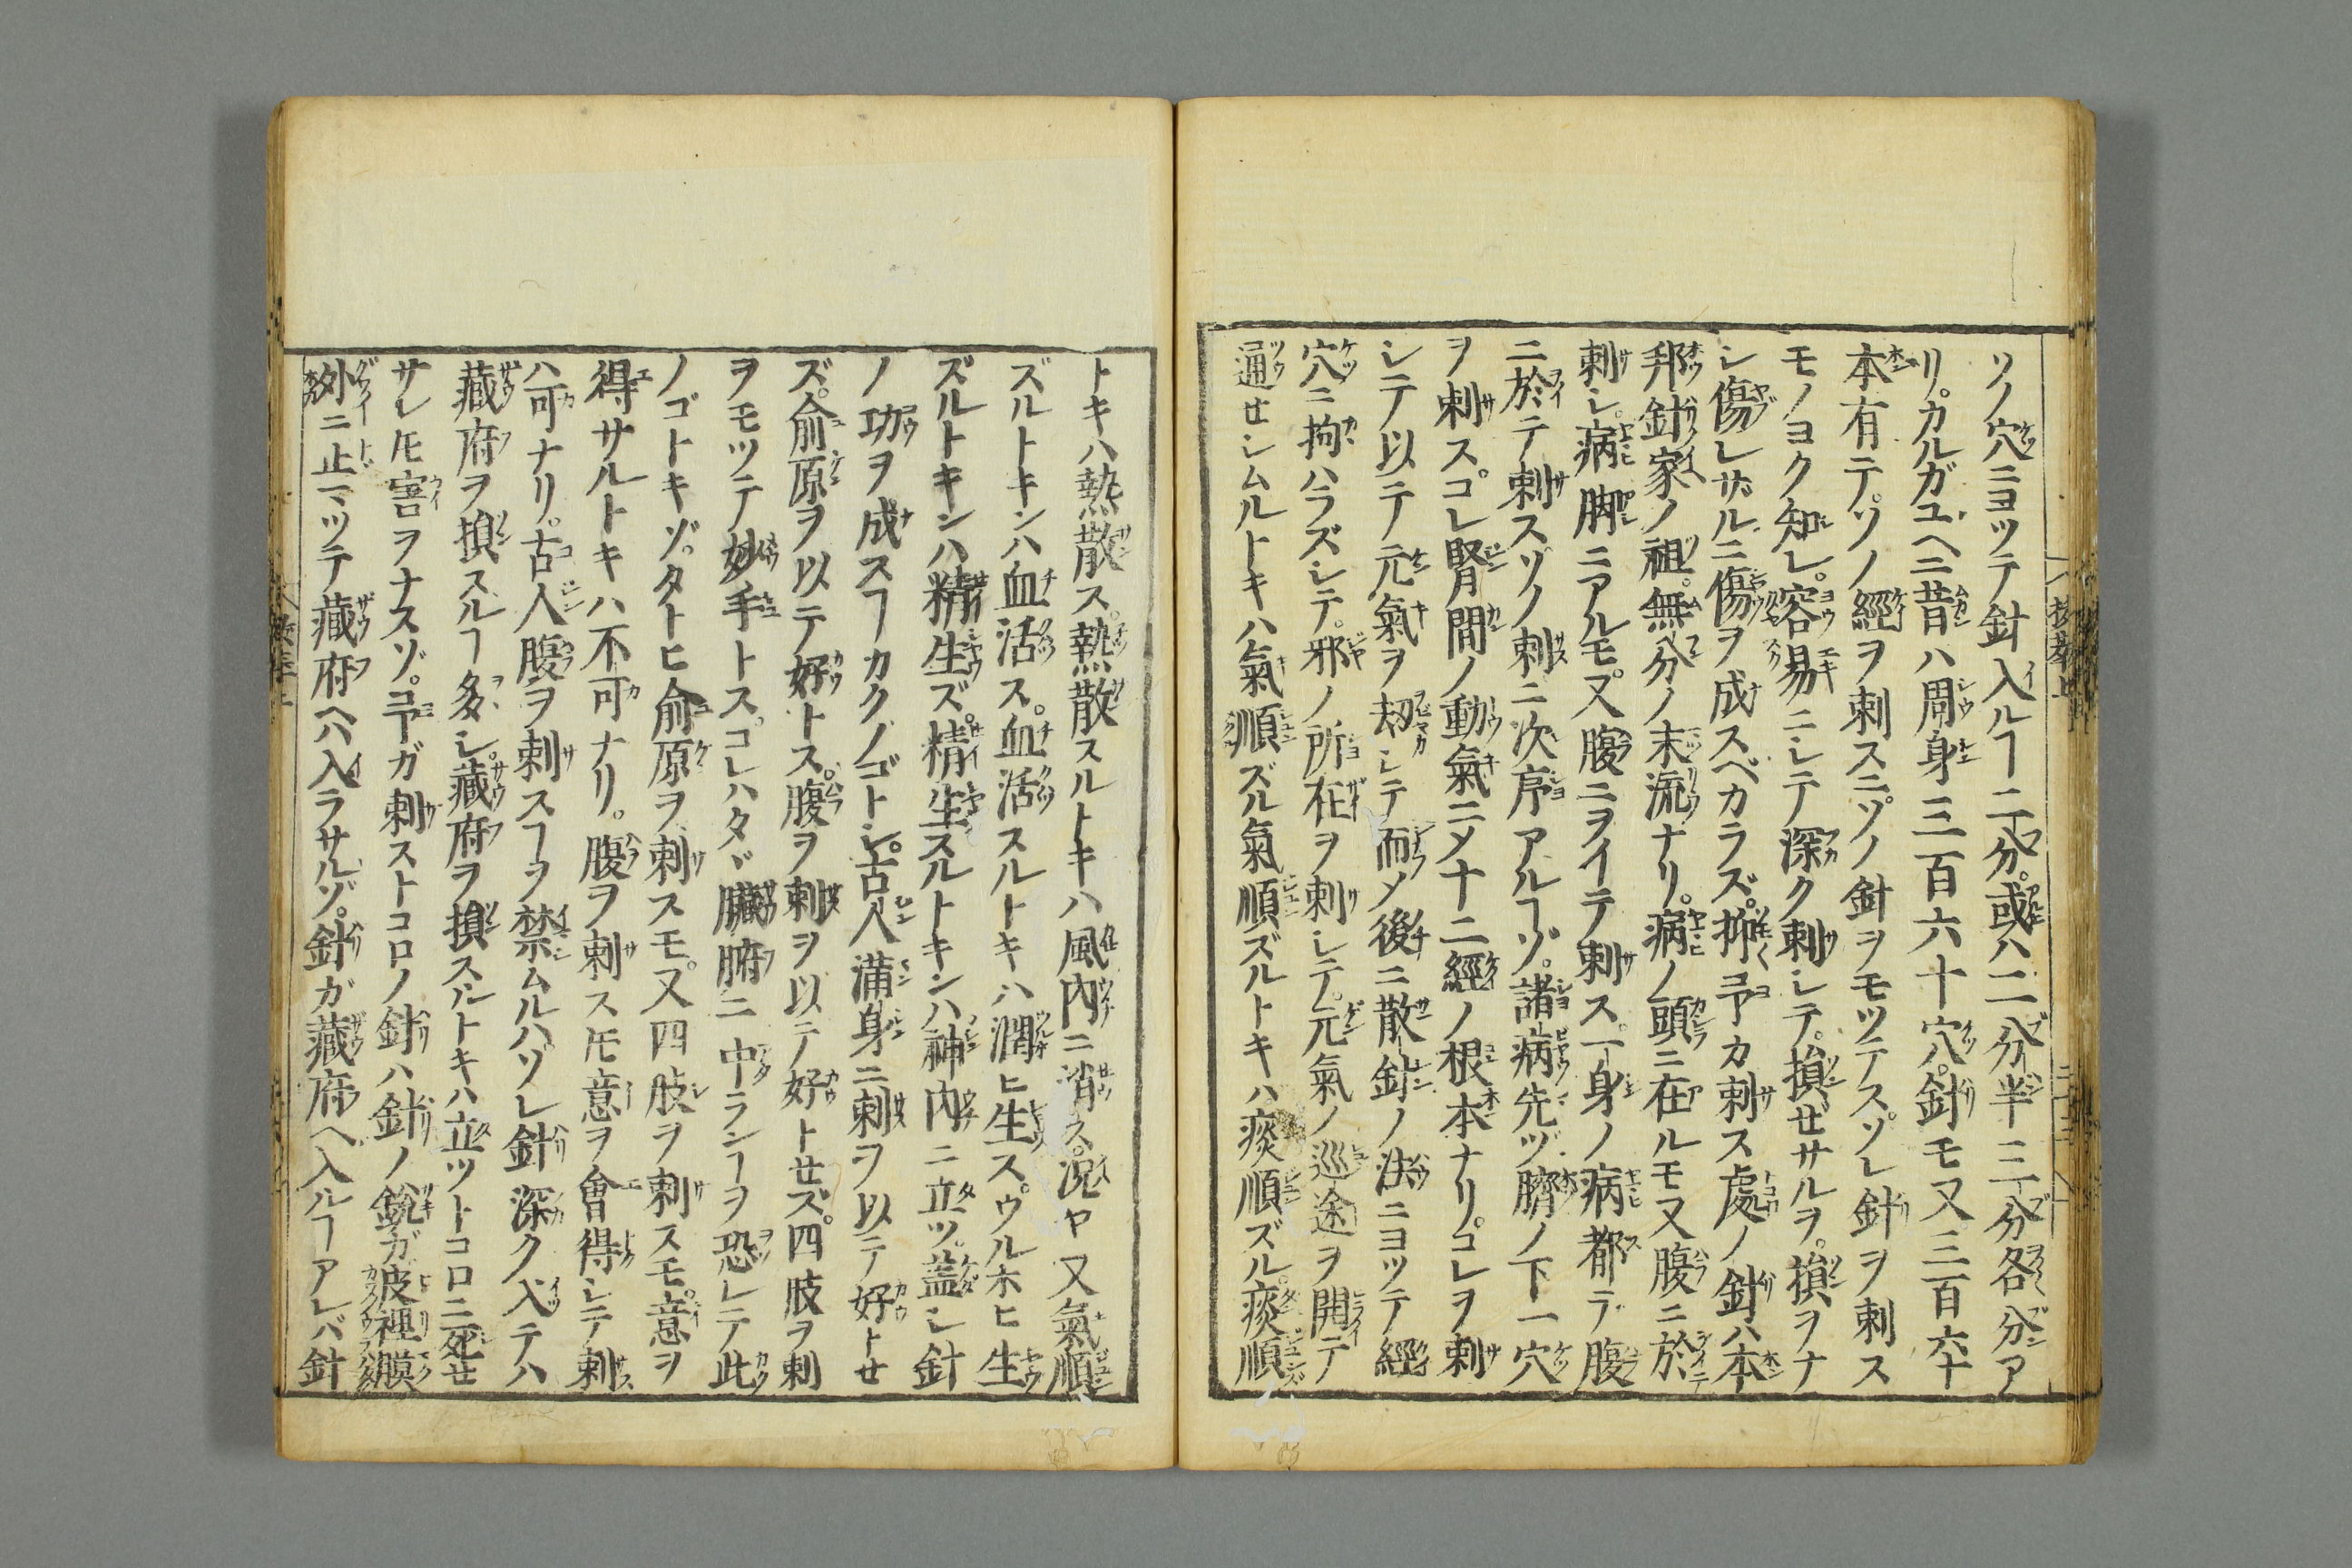 ソノ穴ニヨツテ針入ルヿ二分。或ハ二分半三分各分ア
リ。カルガユヘニ昔ハ周身三百六十穴。針モ又三百六十
本有テ。ソノ經ヲ刺スニ。ソノ針ヲモツテス。ソレ針ヲ刺ス
モノヨク知レ。容易ニシテ深ク刺シテ。損ぜサルヲ。損ヲナ
シ傷レザルニ傷ヲ成スベカラズ。抑予カ刺ス處ノ針ハ本
邦針家ノ祖。無分ノ末流ナリ。病ノ頭ニ在ルモ又腹ニ於
刺シ。病脚ニアルモ。又腹ニヲイテ刺ス。一身ノ病都テ腹
ニ於テ刺ス。ソノ刺ニ次序アルヿゾ。諸病先ヅ臍ノ下一穴
ヲ刺ス。コレ腎間ノ動氣ニメ十二經ノ根本ナリ。コレヲ刺
シテ以テ元氣ヲ刼シテ而メ後ニ散針ノ法ニヨツテ經
穴ニ拘ハラズシテ。邪ノ所在ヲ刺シテ。元氣ノ巡途ヲ開テ
通せシムルトキハ氣順ズル氣順ズルトキハ痰順ズル痰順
トキハ熱散ス。熱散スルトキハ風内ニ消ス。況ヤ又氣順
ズルトキンハ血活ス。血活スルトキハ潤ヒ生ス。ウルホヒ生
ズルトキンハ精生ズ。精生スルトキンハ神内ニ立ツ。蓋シ針
ノ功ヲ成スヿカクノゴトシ。古人滿身ニ刺ヲ以テ好トせ
ズ。俞原ヲ以テ好トス。腹ヲ刺ヲ以テ好トせズ。四肢ヲ刺
ヲモツテ妙手トス。コレハタヾ臟腑ニ中ランヿヲ恐レテ此
ノゴトキゾ。タトヒ俞原ヲ刺スモ。又四肢ヲ刺スモ。意ヲ
得サルトキハ不可ナリ。腹ヲ刺スモ意ヲ會得シテ刺
ハ可ナリ。古人腹ヲ刺スヿヲ禁ムルハソレ針深ク入テハ
藏府ヲ損スルヿ多シ。藏府ヲ損スルトキハ立ツトコロニ死せ
サレ𪜈害ヲナスゾ。予ガ刺ストコロノ針ハ針ノ鋭ガ皮裡膜
外ニ止マツテ藏府ヘハ入ラサルゾ。針ガ藏府ヘ入ルヿアレバ針